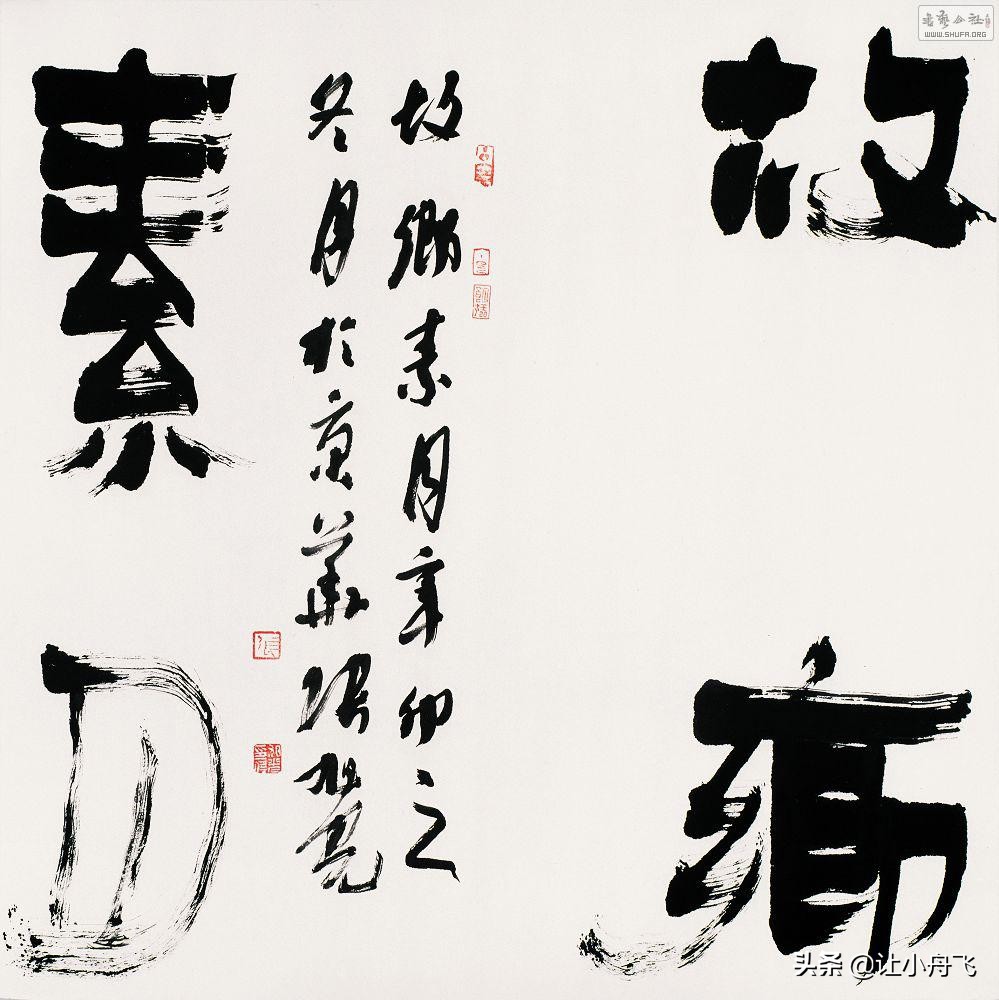 故鄉
故鄉素月辛卯之
冬月於京華張旭光
素月
張
書藝公社
WWW.SHUFA.ORG
头条 @让小舟飞